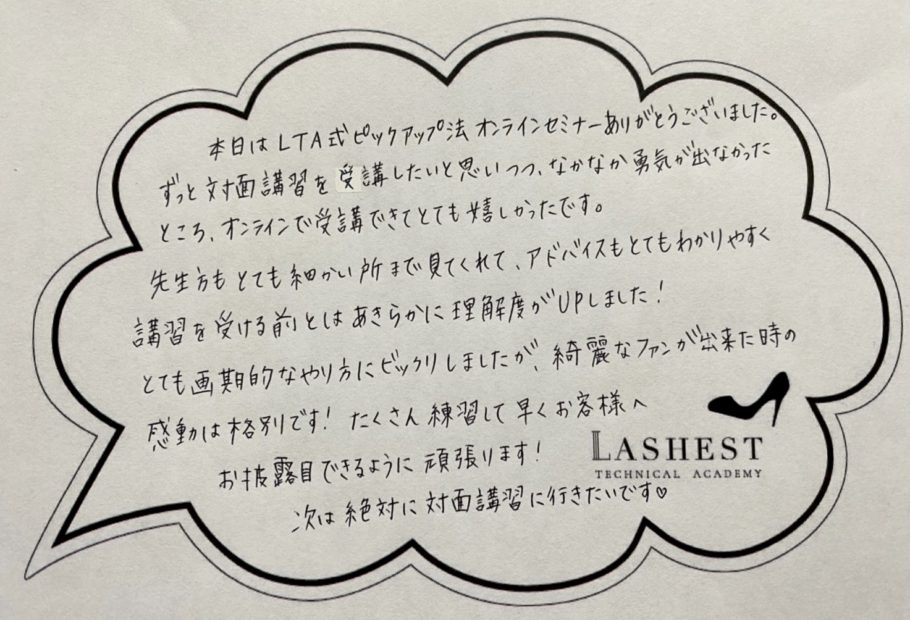 本日はLTA式ピックアップ法オンラインセミナーありがとうございました。
ずっと対面講習を受講したいと思いつつ、なかなか勇気が出なかった
ところ、オンラインで受講できてとても嬉しかったです。
先生方もとても細かい所まで見てくれて、アドバイスもとてもわかりやすく
講習を受ける前とはあきらかに理解度がUPしました！
とても画期的なやり方にビックリしましたが、綺麗なファンが出来た時の
感動は格別です！たくさん練習して早くお客様へ
お披露目できるように頑張ります！
次は絶対に対面講習に行きたいです♡
LASHEST
TECHNICAL ACADEMY